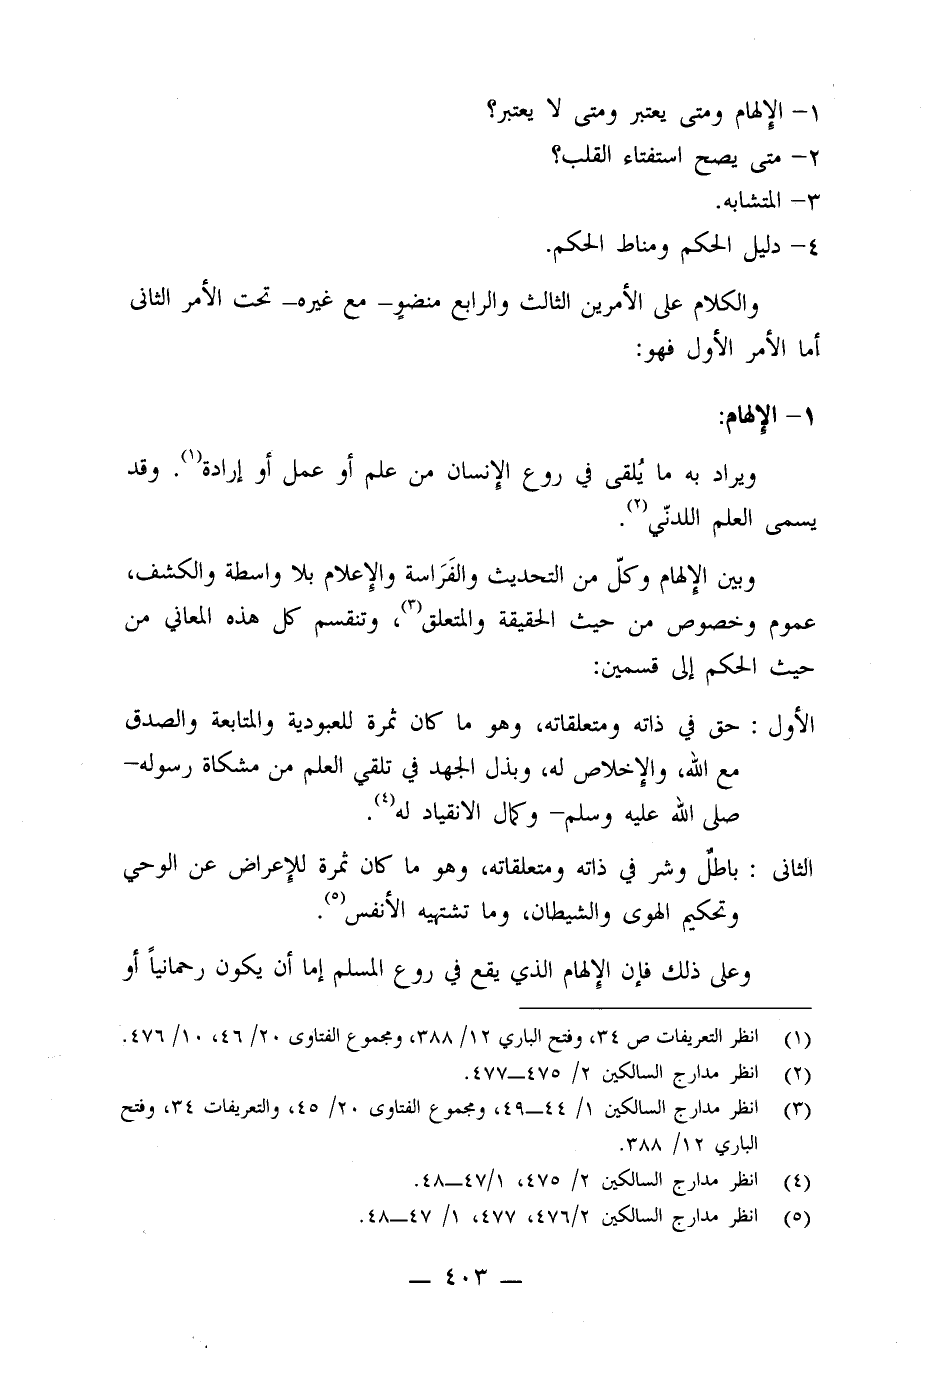 ١- الإلهام ومتى يعتبر ومتى لا يعتبر؟
٢- متى يصح استفتاء القلب؟
٣- المتشابه.
٤- دليل الحكم ومناط الحكم.
والكلام على الأمرين الثالث والرابع منضوٍ- مع غيره- تحت الأمر الثانى
أما الأمر الأول فهو:
١- الإلهام:
ويراد به ما يُلقى في روع الإنسان من علم أو عمل أو إرادة(١). وقد
يسمى العلم اللدنّي(٢).
وبين الإلهام وكلّ من التحديث والفَرَاسة والإعلام بلا واسطة والكشف،
عموم وخصوص من حيث الحقيقة والمتعلق(٣)، وتنقسم كل هذه المعاني من
حيث الحكم إلى قسمين:
الأول : حق في ذاته ومتعلقاته، وهو ما كان ثمرة للعبودية والمتابعة والصدق
مع الله، والإخلاص له، وبذل الجهد في تلقي العلم من مشكاة رسوله-
صلى الله عليه وسلم- وكمال الانقياد له(٤).
الثانى : باطلٌ وشر في ذاته ومتعلقاته، وهو ما كان ثمرة للإعراض عن الوحي
وتحكيم الهوى والشيطان، وما تشتهيه الأنفس(٥).
وعلى ذلك فإن الإلهام الذي يقع في روع المسلم إما أن يكون رحمانياً أو
(١) انظر التعريفات ص ٣٤، وفتح الباري ١٢/ ٣٨٨، ومجموع الفتاوى ٢٠/ ٤٦، ١٠/ ٤٧٦.
(٢) انظر مدارج السالكين ٢/ ٤٧٥-٤٧٧.
(٣) انظر مدارج السالكين ١/ ٤٤-٤٩، ومجموع الفتاوى ٢٠/ ٤٥، والتعريفات ٣٤، وفتح
الباري ١٢/ ٣٨٨.
(٤) انظر مدارج السالكين ٢/ ٤٧٥، ١/٤٧-٤٨.
(٥) انظر مدارج السالكين ٤٧٦/٢، ٤٧٧، ١/ ٤٧-٤٨.
- ٤٠٣ -